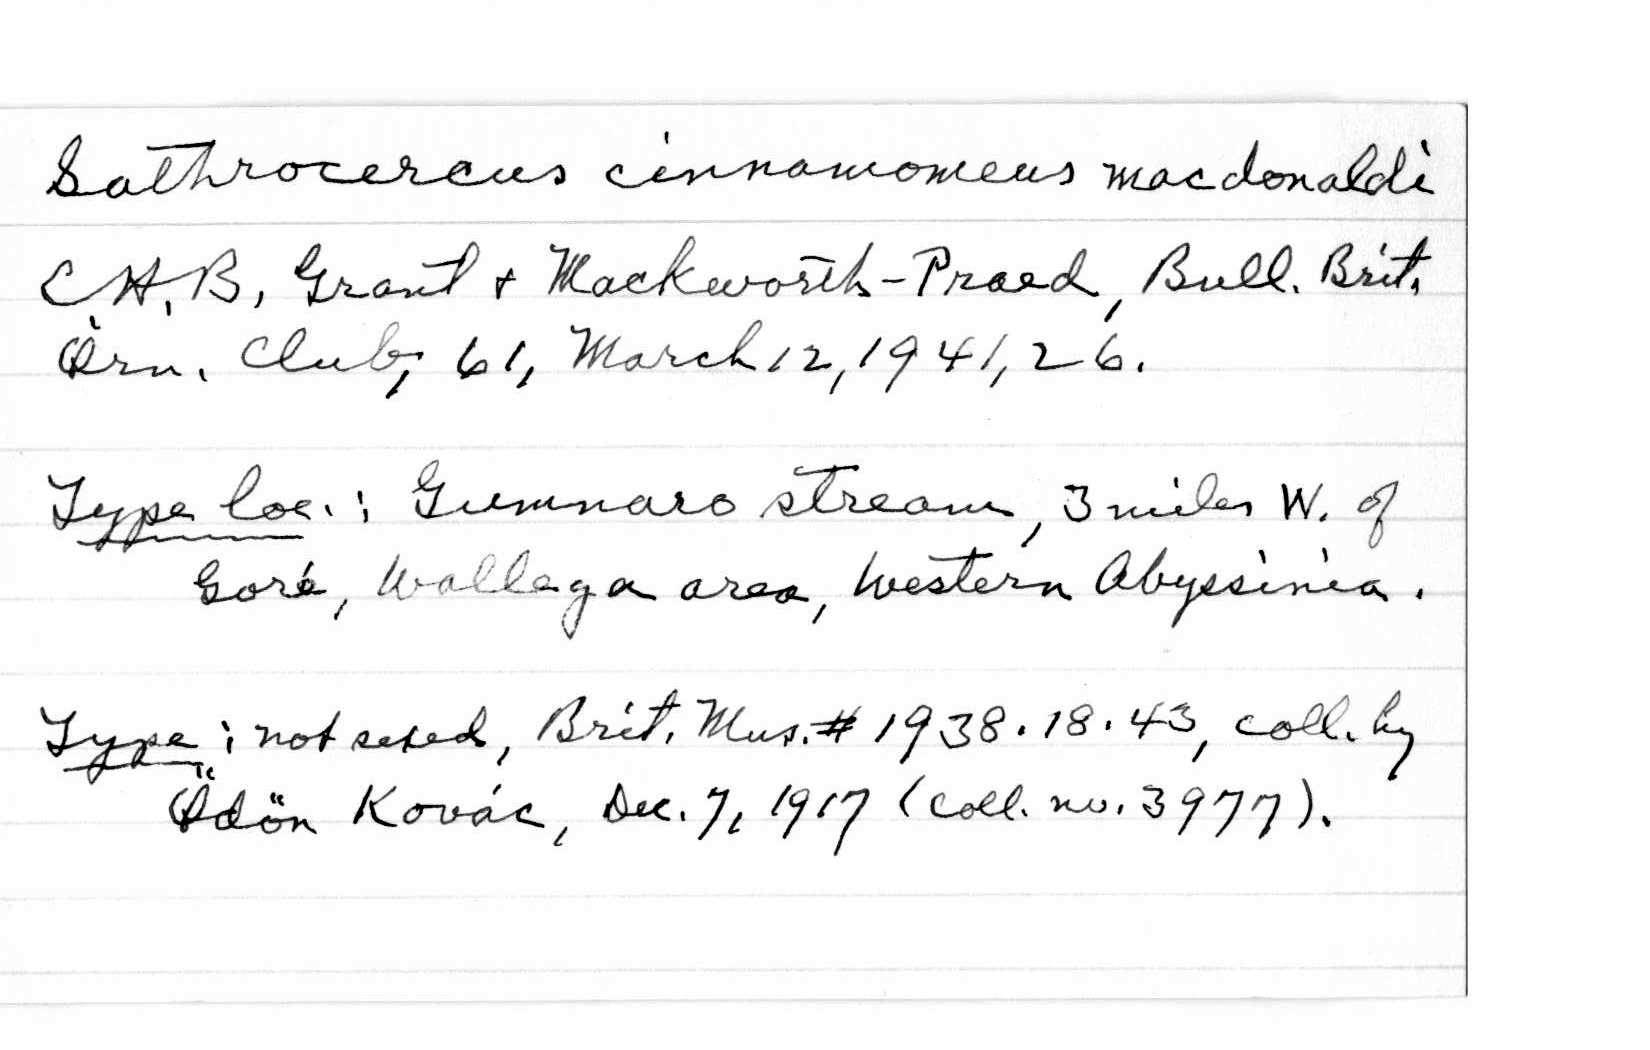 Sathrocercus cinnamomeus macdonaldi
C.H.B. Grant + Mackworth-Praed, Bull. Brit.
Orn. Club, 61, March 12, 1941, 26.
Type loc.: Gumnaro stream, 3 miles W. of
Goré, Wallega area, Western Abyssinia.
Type: not sexed, Brit. Mus. # 1938.18.43, coll. by
Ödön Kovác, Dec. 7, 1917 (coll. no. 3977).